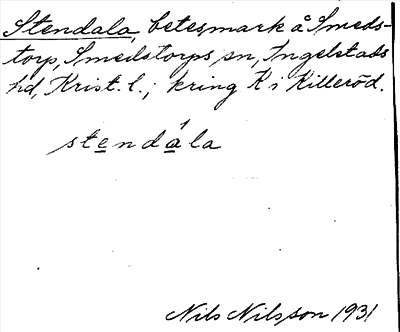 Stendala, betesmark å Smeds-
torp, Smedstorps sn, Ingelstads
hd, Krist. l.; kring K i Killeröd.
stendála
Nils Nilsson 1931